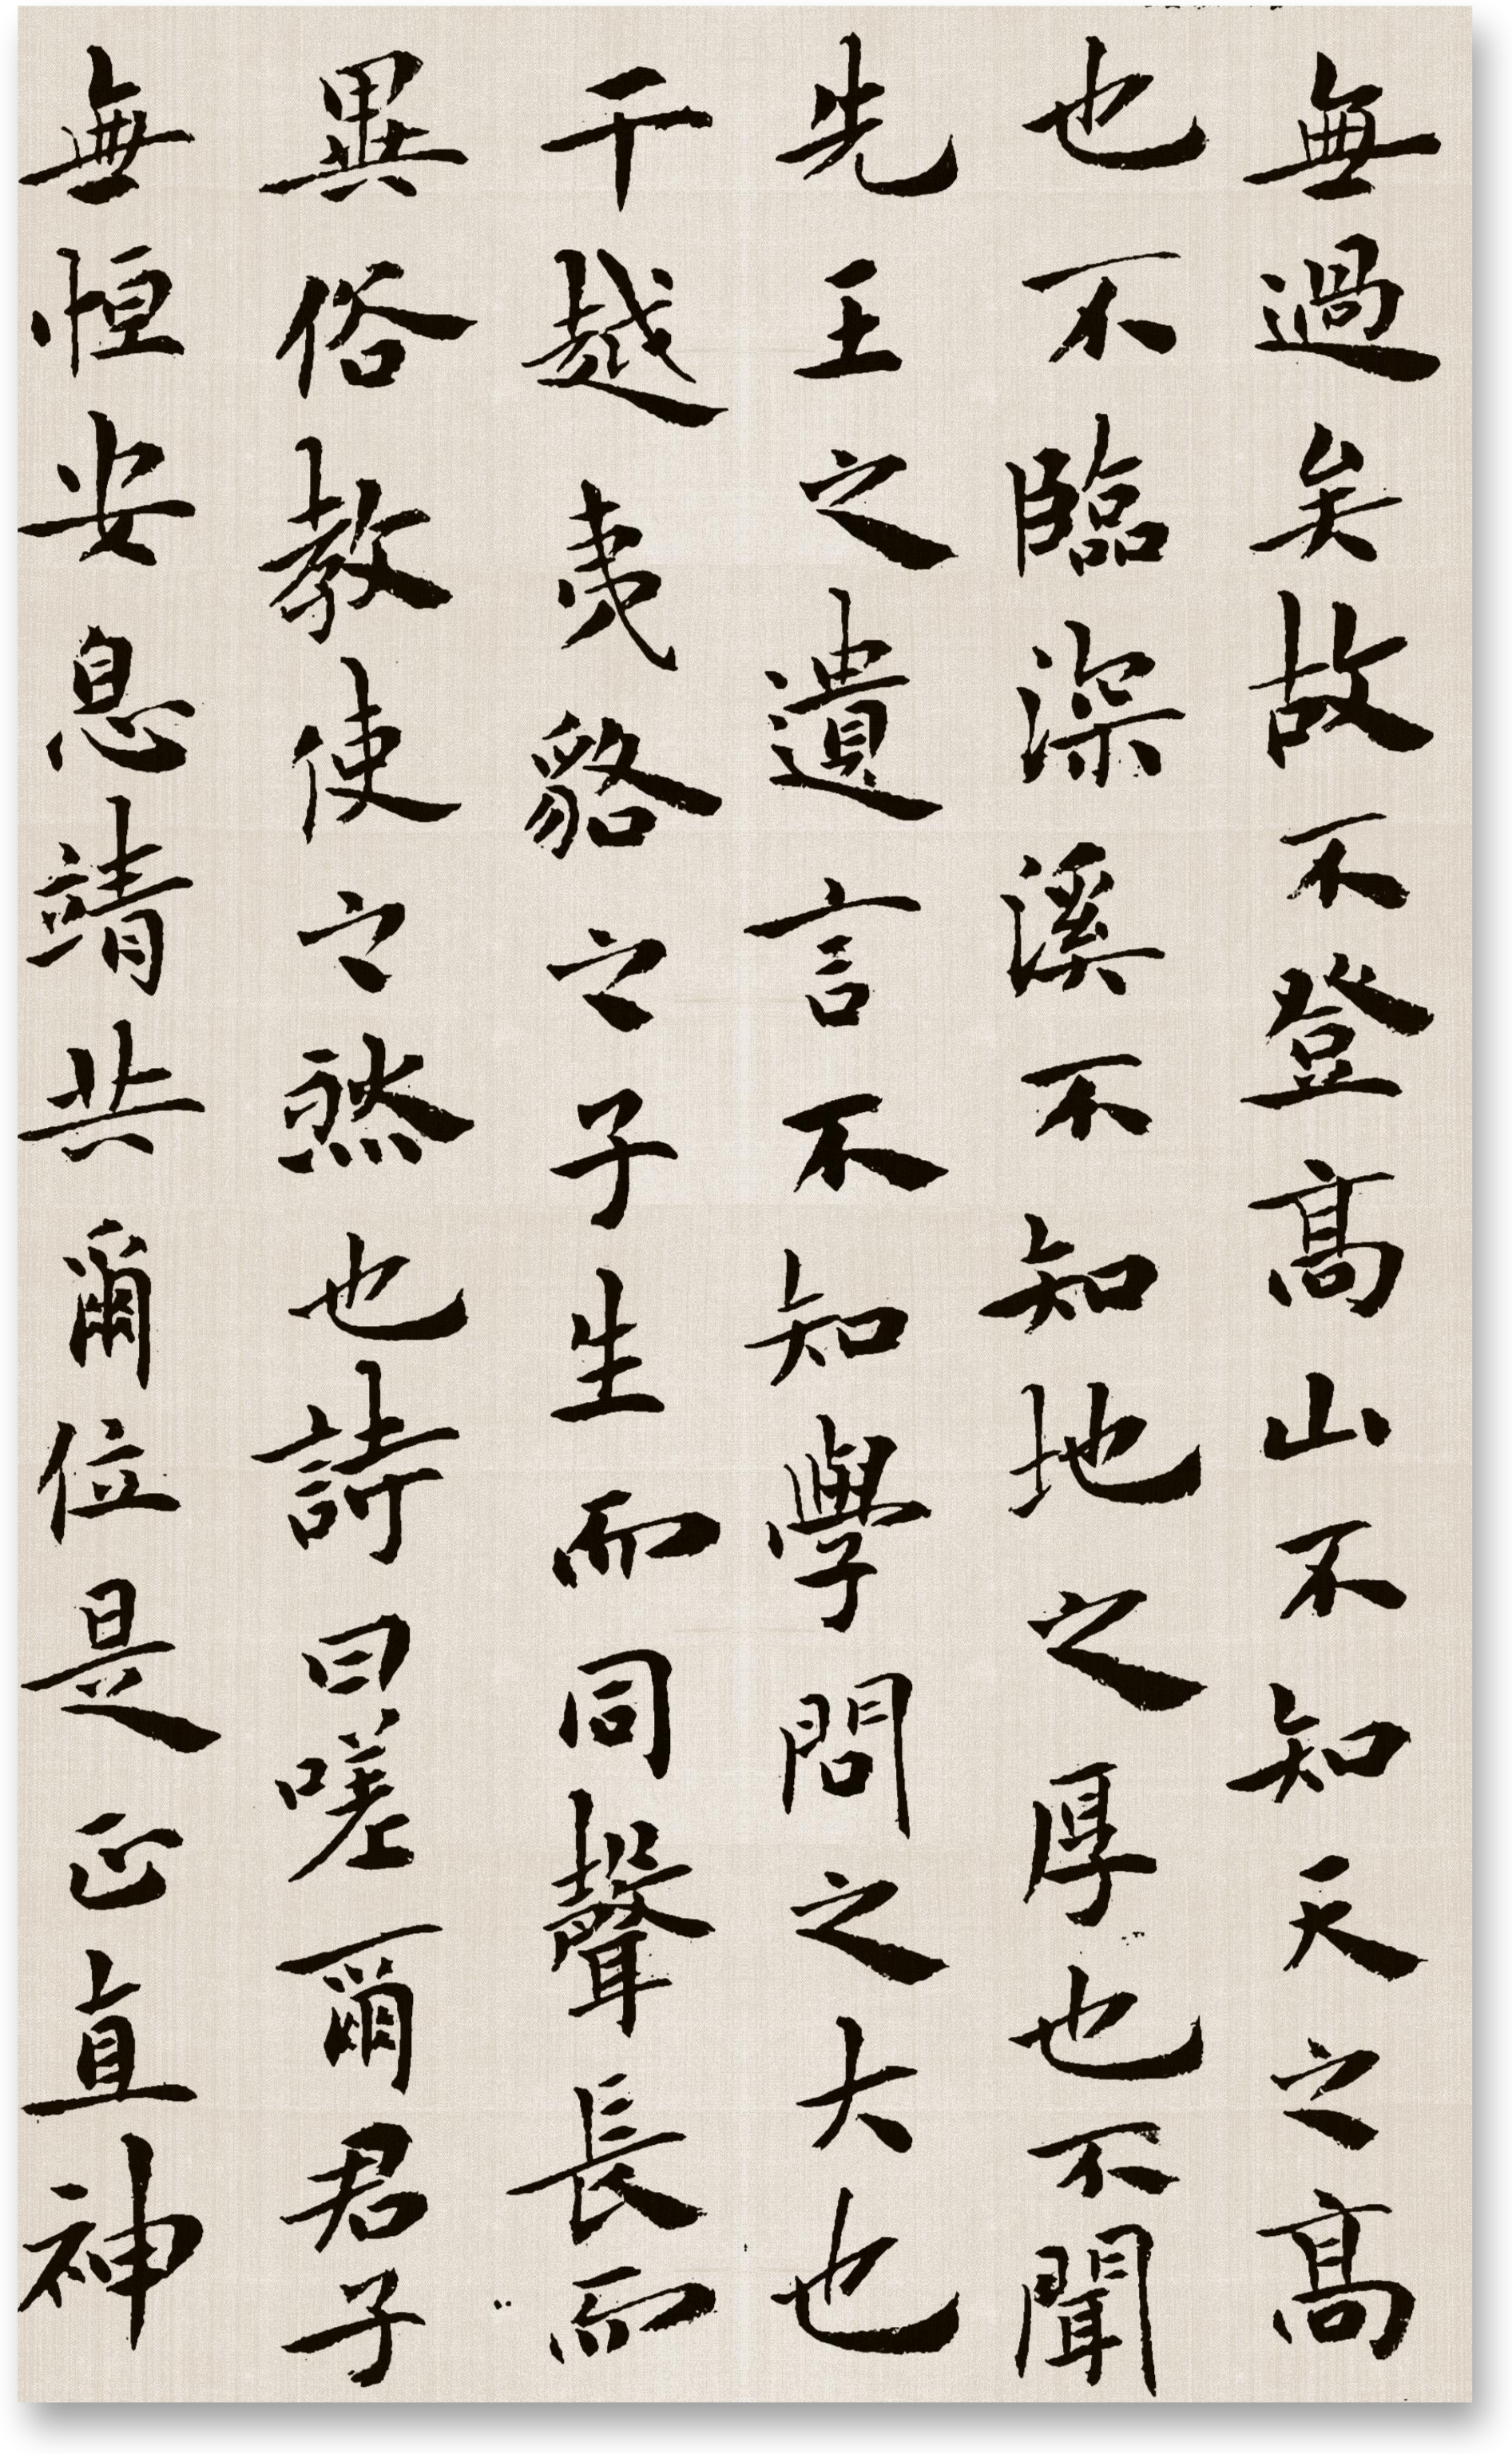 無過矣故不登高山不知天之高
也不臨深溪不知地之厚也不聞
先王之遺言不知學問之大也
干越夷貉之子生而同聲長而
異俗教使之然也詩曰嗟爾君子
無恒安息靖共爾位是正直神